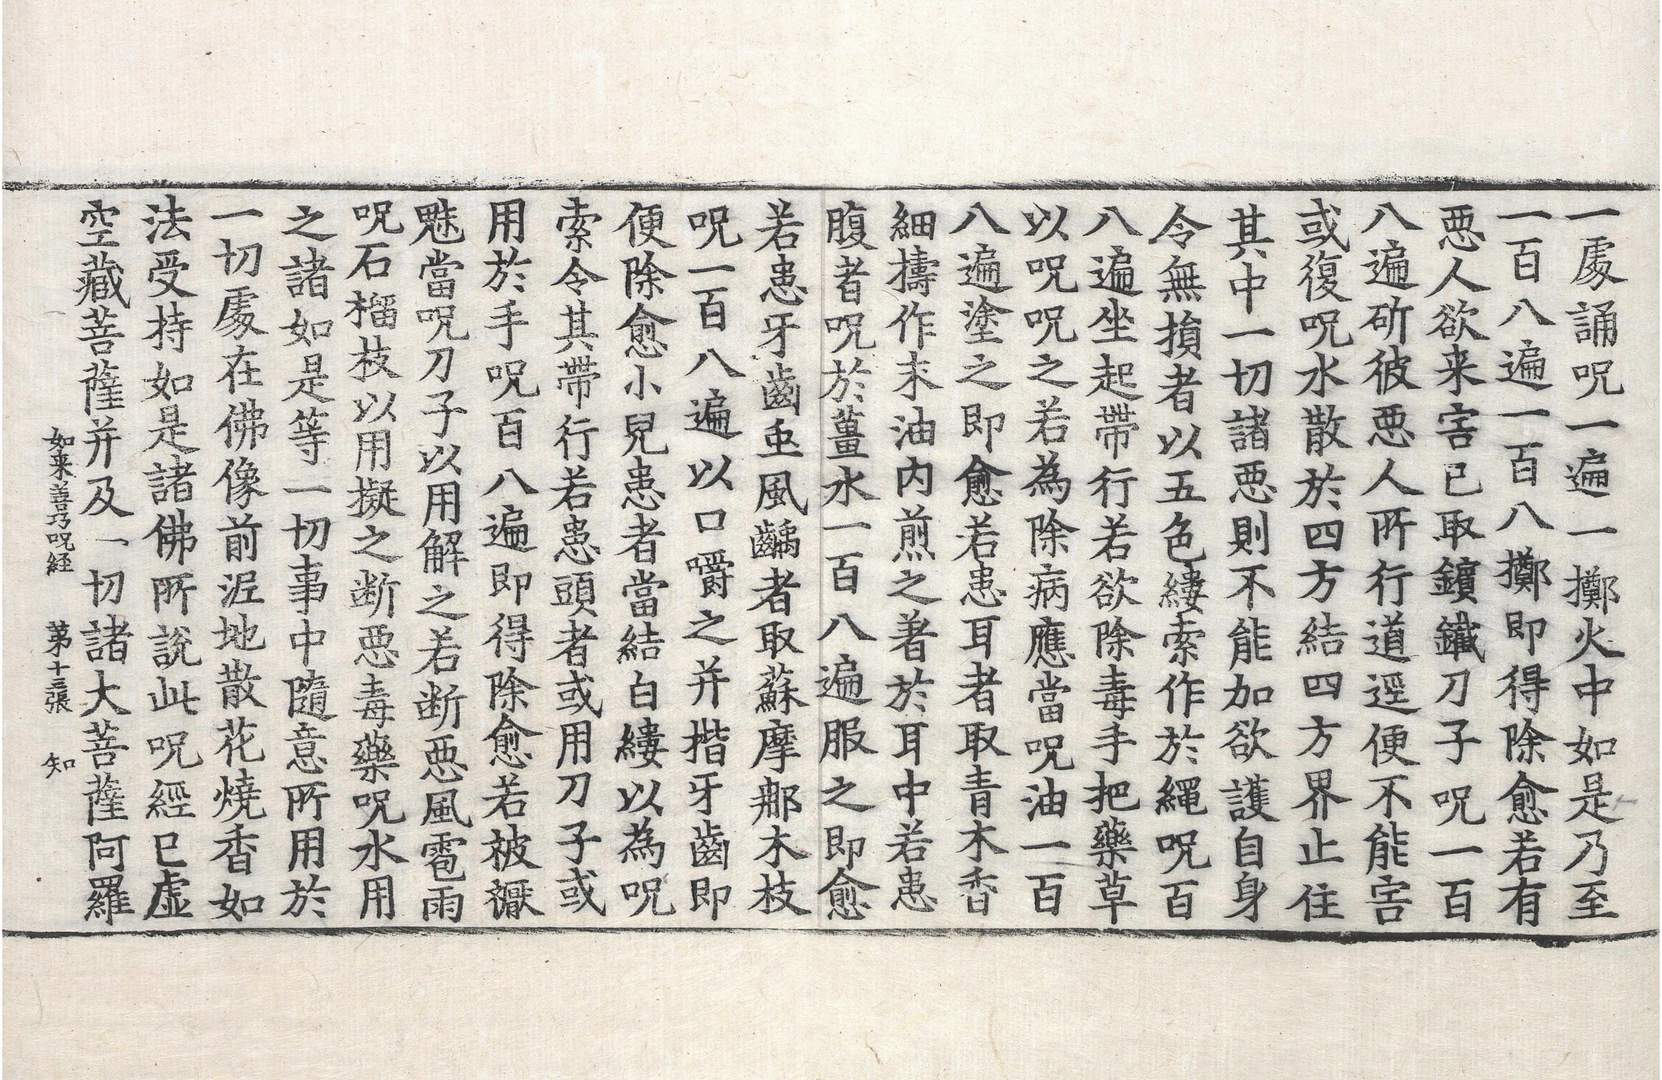 一處誦呪一遍一擲火中如是乃至
一百八遍一百八擲即得除愈若有
惡人欲来害已取鑌鐵刀子呪一百
八遍斫彼惡人所行道逕便不能害
或復呪水散於四方結四方界止住
其中一切諸惡則不能加欲護自身
令無損者以五色縷索作於繩呪百
八遍坐起帶行若欲除毒手把藥草
以呪呪之若為除病應當呪油一百
八遍塗之即愈若患耳者取青木香
細擣作末油內煎之著於耳中若患
腹者呪於薑水一百八遍服之即愈
若患牙齒虫風齲者取蘇摩那木枝
呪一百八遍以口嚼之并揩牙齒即
便除愈小兒患者當結白縷以為呪
索令其帶行若患頭者或用刀子或
用於手呪百八遍即得除愈若被厭
魅當呪刀子以用解之若断惡風雹雨
呪石榴枝以用擬之断惡毒藥呪水用
之諸如是等一切事中隨意所用於
一切處在佛像前泥地散花燒香如
法受持如是諸佛所說此呪經已虛
空藏菩薩并及一切諸大菩薩阿羅
如来善巧呪經 第十三張 知